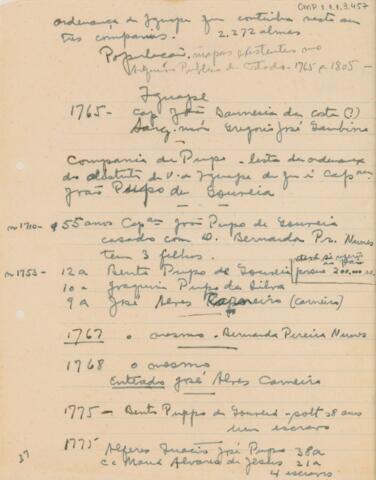 CMP 1.1.3.457
ordenança de Iguape que contribue neste an
tres companias. 2.272 almas
População. mapas existentes no
Arquivo Publico do Estado - 1765 a 1805 -
Iguape
1765 - cap João da costa (?)
Sarg. mór Gregorio José
Companhia de Pupo - lista da ordenança
do destricto de V.a Iguape de que é Capam
João Pupo de Gouveia
n 1710 - 55 anos Capam João Pupo de Gouveia
casado com D. Bernarda Pr. Nunes
tem 3 filhos.
n 1753 - 12 a Bento Pupo de Gouveia
10 a Joaquim Pupo da Silva
9 a José Alves (Carneiro)
1767 o mesmo - Bernarda Pereira Nunes
1768 o mesmo
Enteado José Alves Carneiro
1775 - Bento Pupo de Gouveia - solt 28 anos
um escravo
1775 Alferes Inacio José Pupo 38 a
c c Maria Alvares de Jesus 21 a
4 escravos
37